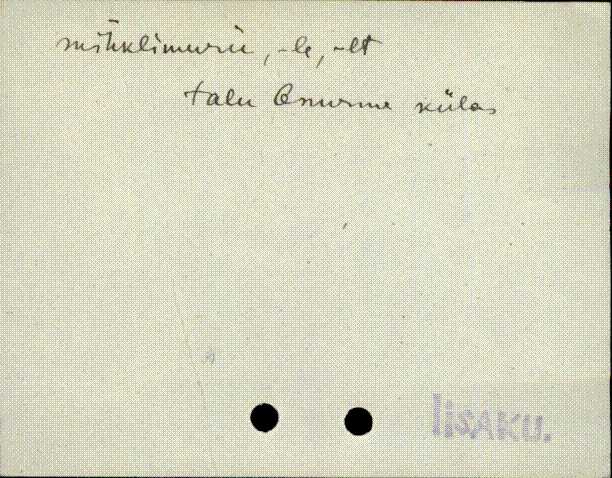 mihklimurru, -le, -lt
talu Onurme külas
Iisaku.